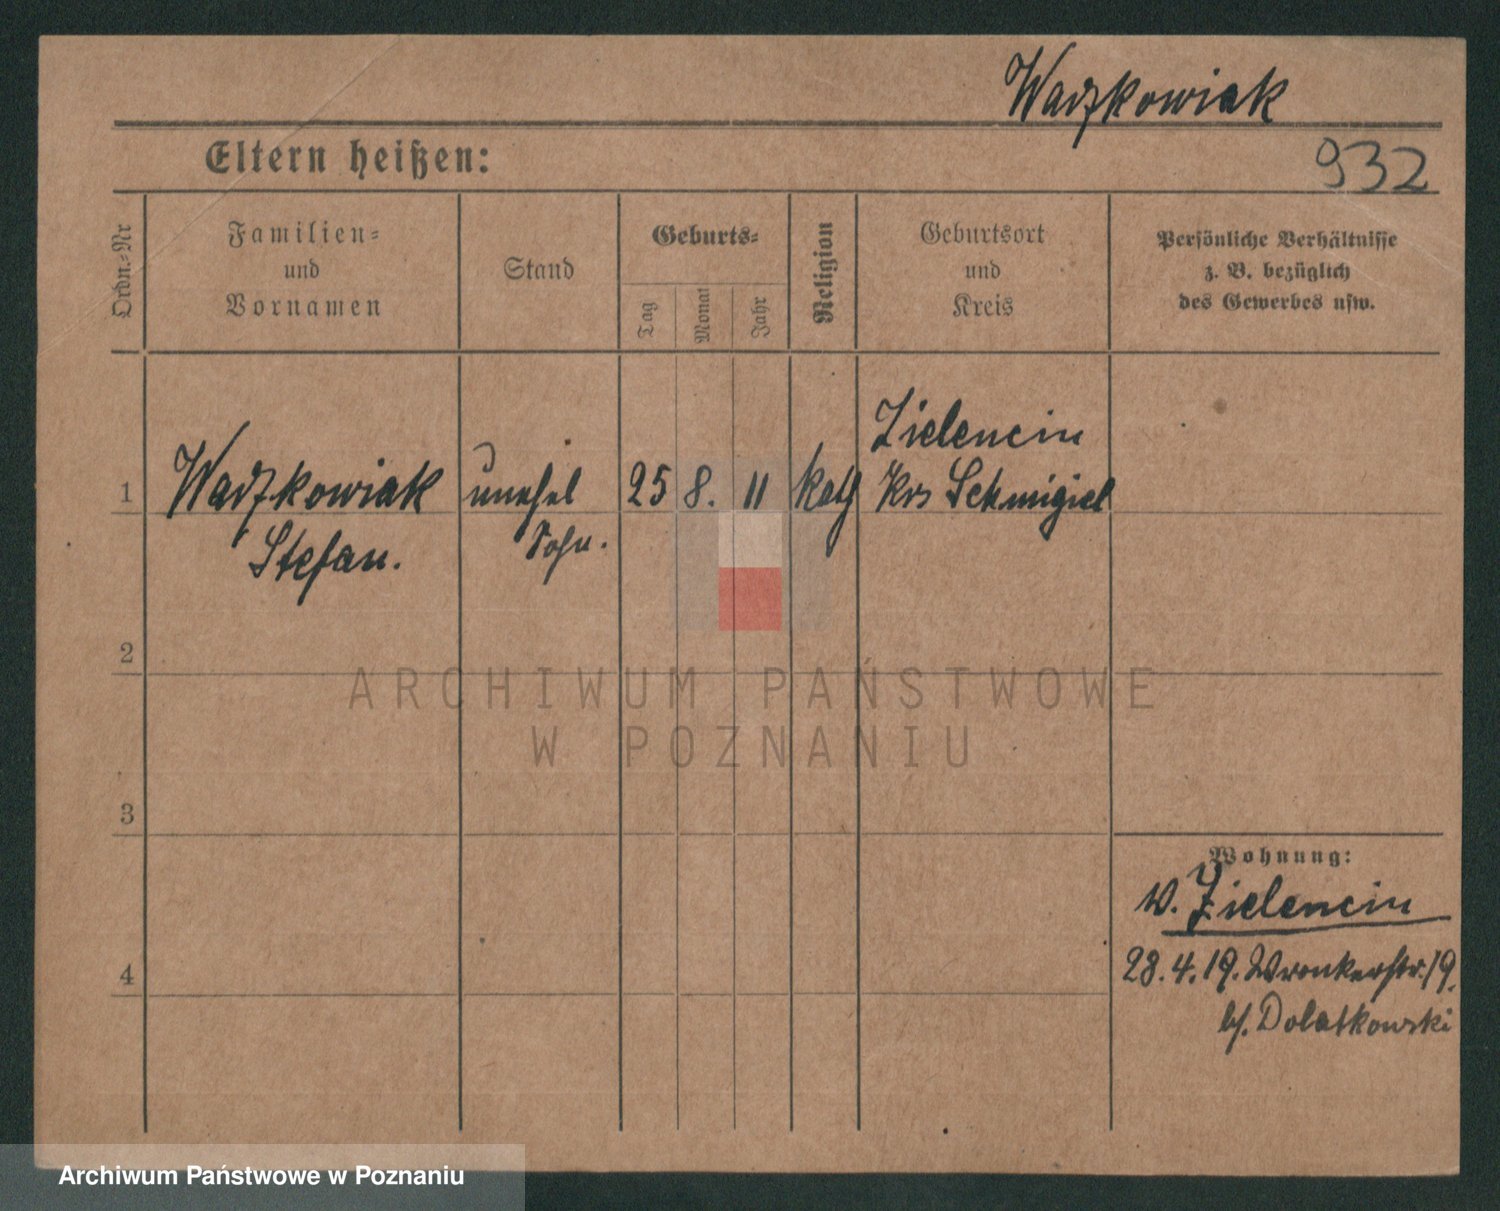 Wadzkowiak
Eltern heißen:
932
Ordn.-Nr
Familien-
und
Vornamen
Stand
Geburts-
Tag
Monat
Jahr
Religion
Geburtsort
und
Kreis
Persönliche Verhältnisse
z. B. bezüglich
des Gewerbes usw.
1
Wadzkowiak
Stefan.
unehel
Sohn.
25 8. 11
kath
Zielencin
Krs Schmigiel
2
ARCHIWUM PAŃSTWOWE
W POZNANIU
3
Wohnung:
v. Zielencin
4
28.4.19. Wronkerstr. 19.
bf. Dolatkowski
Archiwum Państwowe w Poznaniu